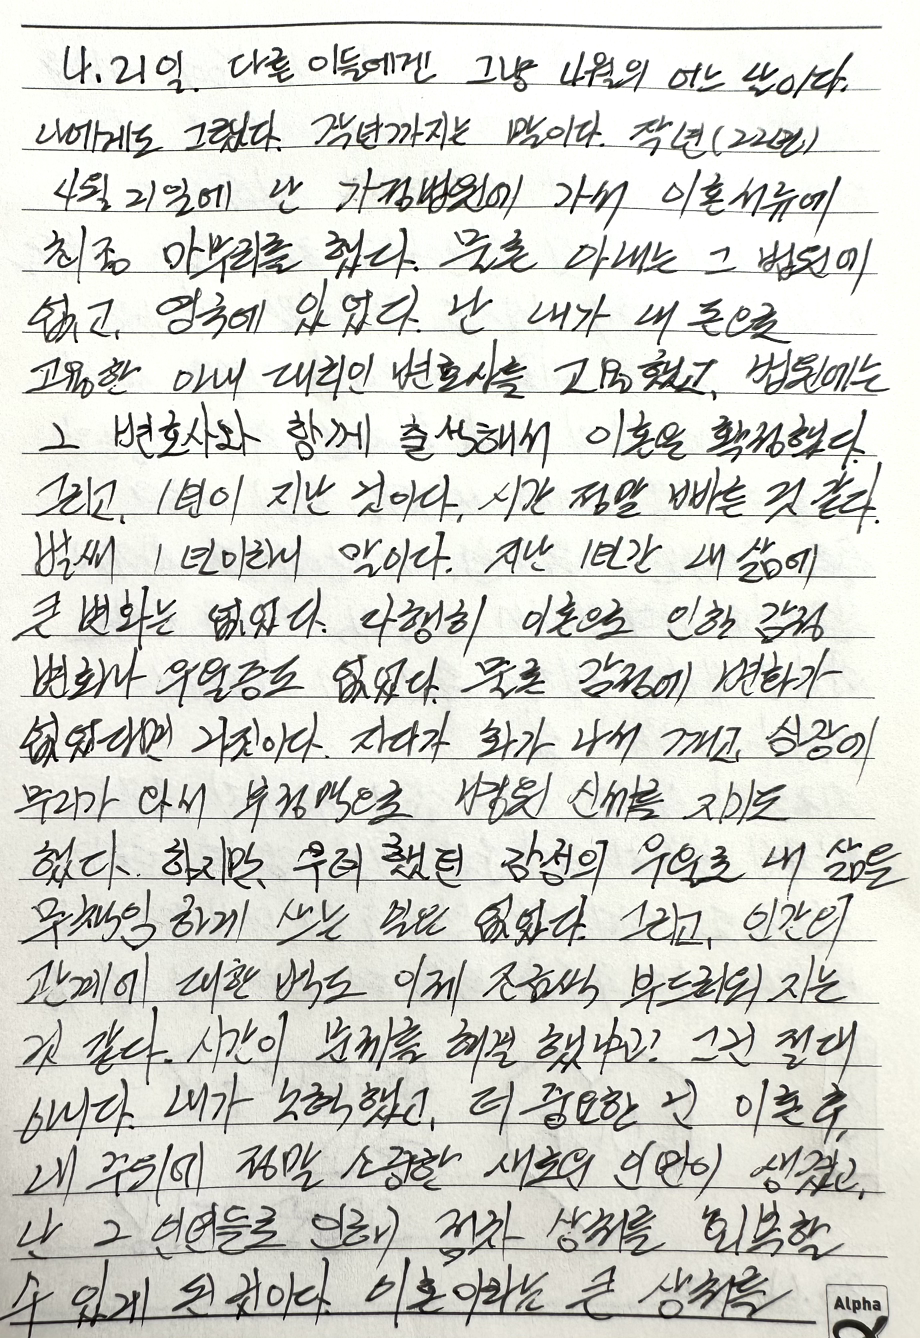 4.21일. 다른 이들에겐 그냥 4월의 어느 날이다.
나에게도 그랬다. 작년까지는 말이다. 작년(22년)
4월 21일에 난 가정법원에 가서 이혼서류에
최종 마무리를 했다. 물론 아내는 그 법원에
없고, 영국에 있었다. 난 내가 내 돈으로
고용한 아내 대리인 변호사를 고용했고, 법원에는
그 변호사와 함께 출석해서 이혼을 확정했다.
그리고, 1년이 지난 것이다. 시간 정말 빠른 것 같다.
벌써 1년이라니 말이다. 지난 1년간 내 삶에
큰 변화는 없었다. 다행히 이혼으로 인한 감정
변화나 우울증도 없었다. 물론 감정에 변화가
없었다면 거짓이다. 자다가 화가 나서 깨고, 심장에
무리가 와서 부정맥으로 병원 신세를 지기도
했다. 하지만, 우려했던 감정의 우울로 내 삶을
무책임하게 사는 일은 없었다. 그리고, 인간의
관계에 대한 벽도 이제 조금씩 부드러워 지는
것 같다. 시간이 문제를 해결 했냐고? 그건 절대
아니다. 내가 노력했고, 더 중요한 건 이혼 후,
내 주위에 정말 소중한 새로운 인연이 생겼고,
난 그 인연들로 인해 점차 상처를 회복할
수 있게 된 것이다. 이혼이라는 큰 상처를
Alpha